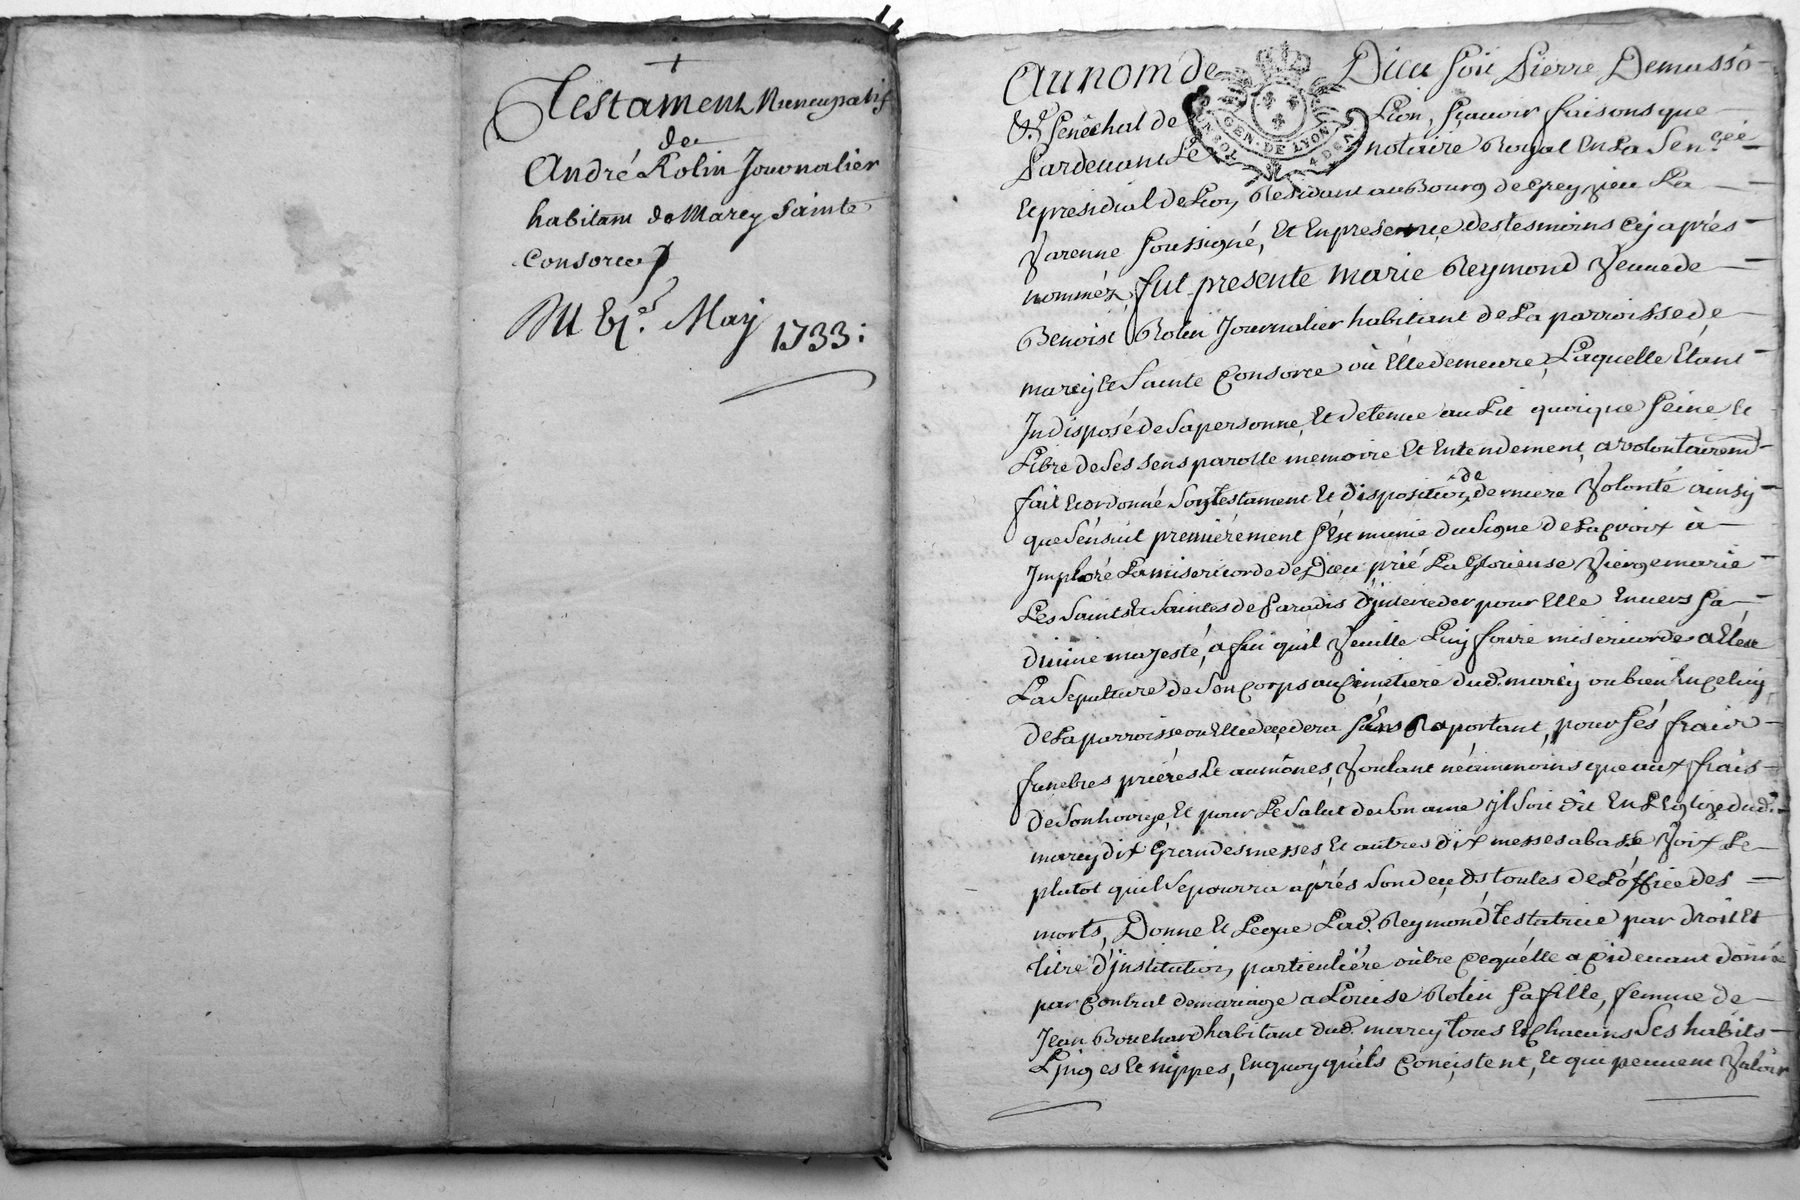 Testament Nuncupatif
de
André Rolin Journalier
habitant de Marcy Sainte
Consorce
Du 61.e May 1733:
Au nom de Dieu soit Pierre Demasso
Sénéchal de Lion, sçavoir faisons que
Pardevant Le notaire Royal En La Sen.cée
GEN. DE LYON
Et presidial de Lion Residant au Bourg de Grezieu La
Varenne soussigné, Et En presence des tesmoins cy après
nommés, fut presente Marie Reymond Veuve de
Benoist Rolin Journalier habitant de La parroisse de
marcy Et Sainte Consorce où Elle demeure, Laquelle Etant
Indisposé de Sa personne, Et detenue au Lit quoique Seine Et
Libre de Ses Sens parolle memoire Et Entendement, a volontairemt
fait Et ordonné Son Testament Et disposition de derniere Volonté ainsy
que Sénsuit premiérement S'Est munie du Signe de La croix à
Imploré La misericorde de Dieu prié La Glorieuse Vierge marie
Les Saints Et Saintes de Paradis d'jnterceder pour Elle Envers Sa
divine majesté, afin qu'il Veuille Luy faire misericorde a Eleu
La Sepulture de Son Corps au Cimetiere dud. marcy ou bien En celuy
de La parroisse ou Elle decedera S'En Raportant, pour Sés frais
funebres priéres Et aumônes, Voulant néammoins que aux frais
de Son hoirye, Et pour Le Salut de Son ame Jl Soit dit En L'Eglize dud.
marcy dix Grandes messes Et autres dix messes a basse Voix Le
plutot quil Se pourra aprés Son decéds toutes de L'óffice des
morts, Donne Et Legue Lad. Reymond Testatrice par droit Et
titre d'jnstitution particuliére oûtre ce quélle a cidevant donné
par Contrat de mariage a Louise Rolin Sa fille, femme de
Jean Bouchard habitant dud. marcy Tous Et Chacuns Ses habits
Linges Et nippes, En quoy qu'ils Concistent, Et qui peuvent Valoir